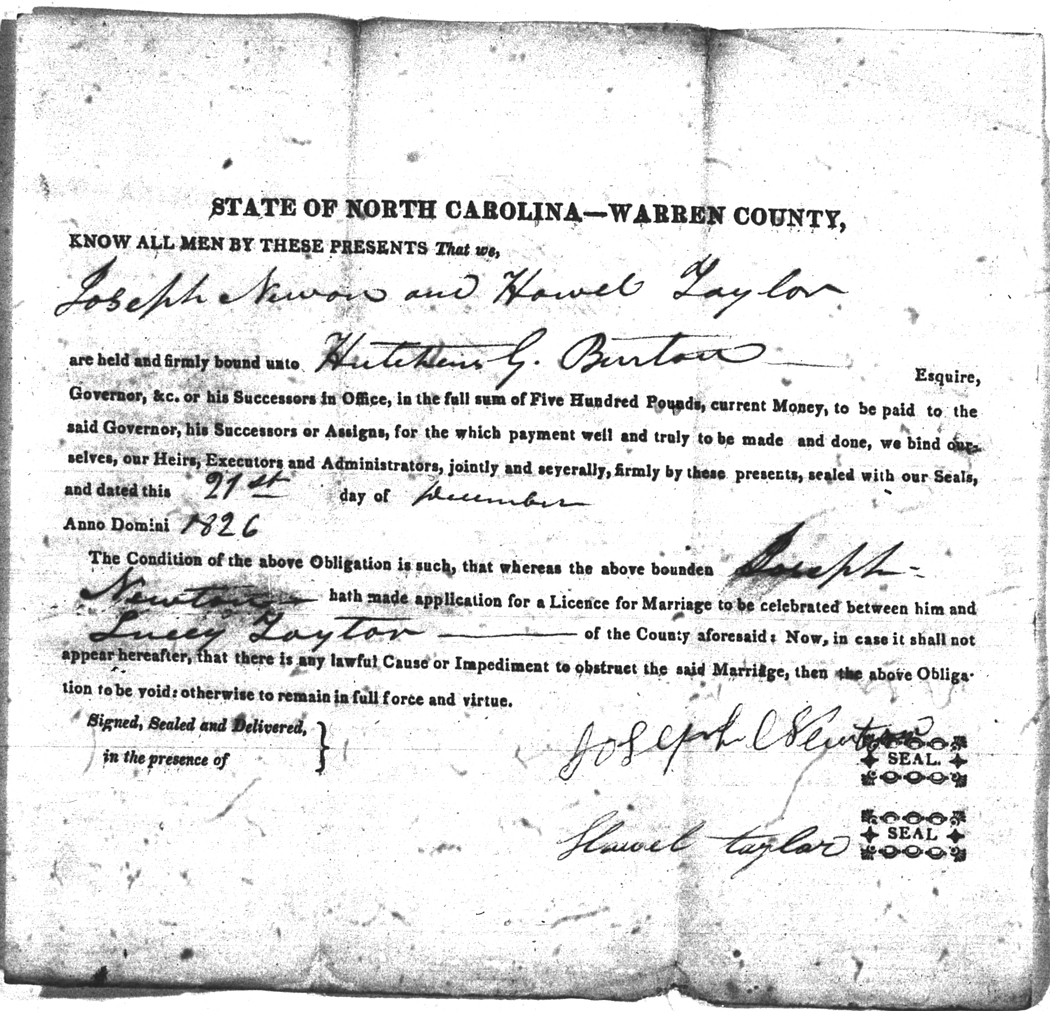 STATE OF NORTH CAROLINA—WARREN COUNTY,
KNOW ALL MEN BY THESE PRESENTS That we,
Joseph Newton and Howel Taylor
are held and firmly bound unto Hutchins G. Burton Esquire,
Governor, &c. or his Successors in Office, in the full sum of Five Hundred Pounds, current Money, to be paid to the
said Governor, his Successors or Assigns, for the which payment well and truly to be made and done, we bind our-
selves, our Heirs, Executors and Administrators, jointly and severally, firmly by these presents, sealed with our Seals,
and dated this 21st day of December
Anno Domini 1826
The Condition of the above Obligation is such, that whereas the above bounden Joseph
Newton hath made application for a Licence for Marriage to be celebrated between him and
Lucey Taylor of the County aforesaid: Now, in case it shall not
appear hereafter, that there is any lawful Cause or Impediment to obstruct the said Marriage, then the above Obliga-
tion to be void: otherwise to remain in full force and virtue.
Signed, Sealed and Delivered,
in the presence of
Joseph Newton SEAL.
Howel taylor SEAL